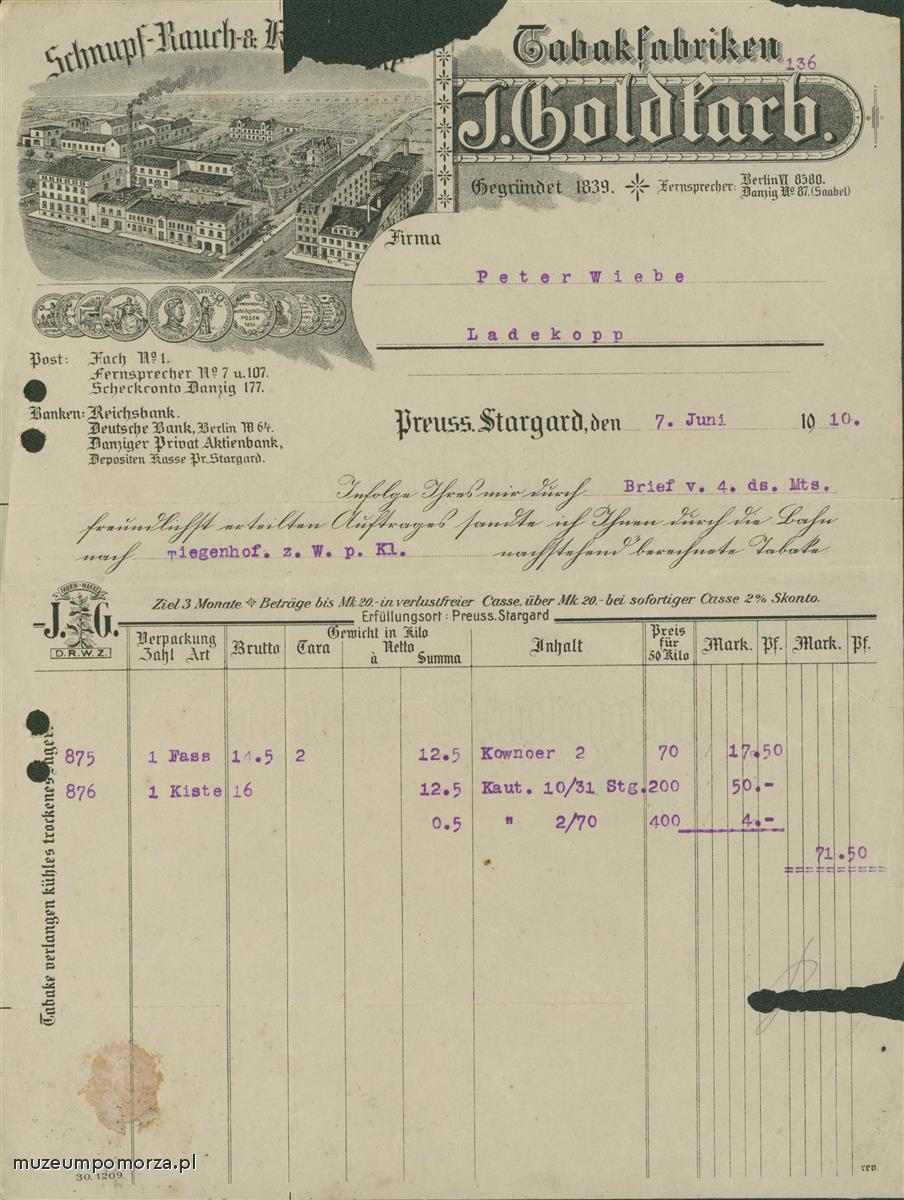 Schnupf-Rauch-&
Tabakfabriken
136
J. Goldfarb.
Gegründet 1839. Fernsprecher: Berlin VI 8580.
Danzig No 87. (Saabel)
Firma
Peter Wiebe
Ladekopp
POSEN
Post: Fach No 1.
Fernsprecher No 7 u. 107.
Scheckconto Danzig 177.
Banken: Reichsbank.
Deutsche Bank, Berlin W 64.
Danziger Privat Aktienbank,
Depositen Kasse Pr. Stargard.
Preuss. Stargard, den 7. Juni 1910.
Infolge Ihres mir durch Brief v. 4. ds. Mts.
freundlichst erteilten Auftrages sandte ich Ihnen durch die Bahn
nach Tiegenhof. z. W. p. Kl. nachstehend berechnete Tabake
FABRIK-MARKE
J. G.
D.R.W.Z.
Ziel 3 Monate * Beträge bis Mk. 20.- in verlustfreier Casse, über Mk. 20.- bei sofortiger Casse 2% Skonto.
Erfüllungsort: Preuss. Stargard
Verpackung Zahl Art Brutto Tara Gewicht in Kilo Netto à Summa Inhalt Preis für 50 Kilo Mark. Pf. Mark. Pf.
875 1 Fass 14.5 2 12.5 Kownoer 2 70 17.50
876 1 Kiste 16 12.5 Kaut. 10/31 Stg. 200 50.-
0.5 " 2/70 400 4.-
71.50
Tabake verlangen kühles trockenes Lager.
muzeumpomorza.pl
30.1209.
rev.